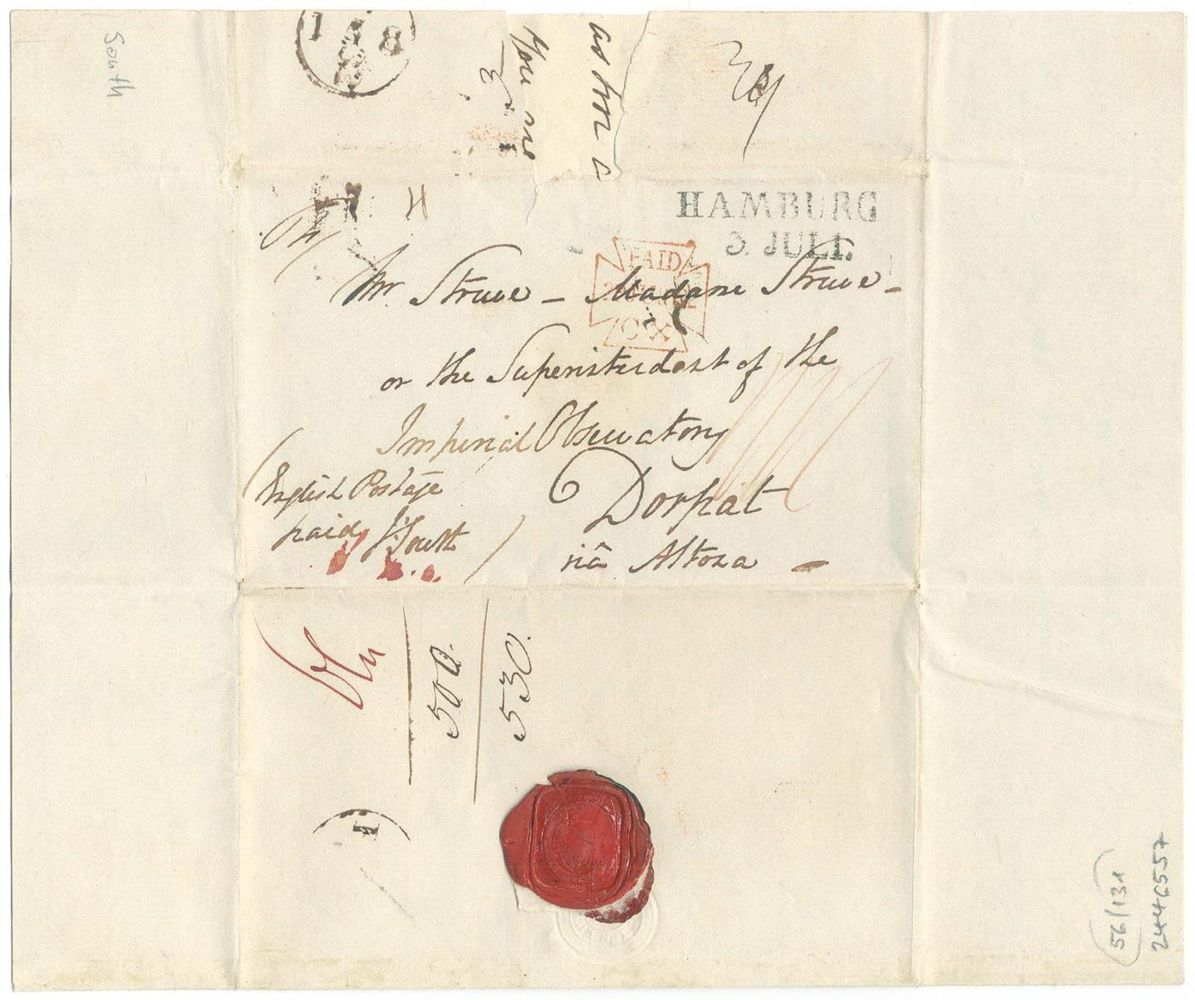 South
1 8
as her
3
HAMBURG
3. JULI.
H
PAID
Mr Struve – Madame Struve –
or the Superintendent of the
Imperial Observatory
Dorpat
viâ Altona –
English Postage
paid J. South
500.
530.
1
56/131
2446557